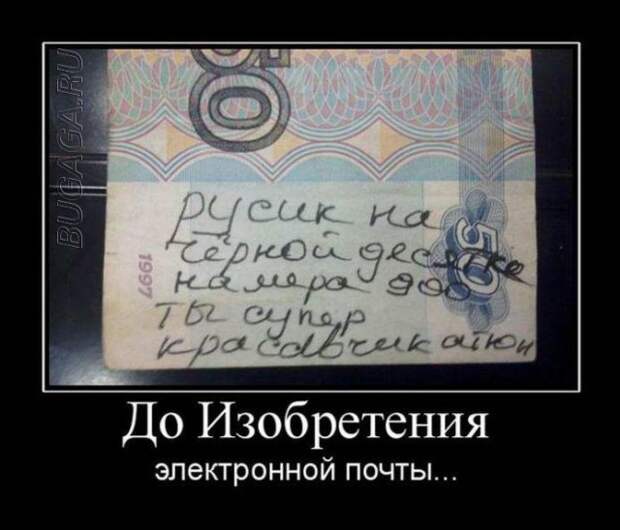 BUGAGA.RU
50
1997
50
русик на
чёрной десятке
намера 900
ты супер
красавчик
До Изобретения
электронной почты...